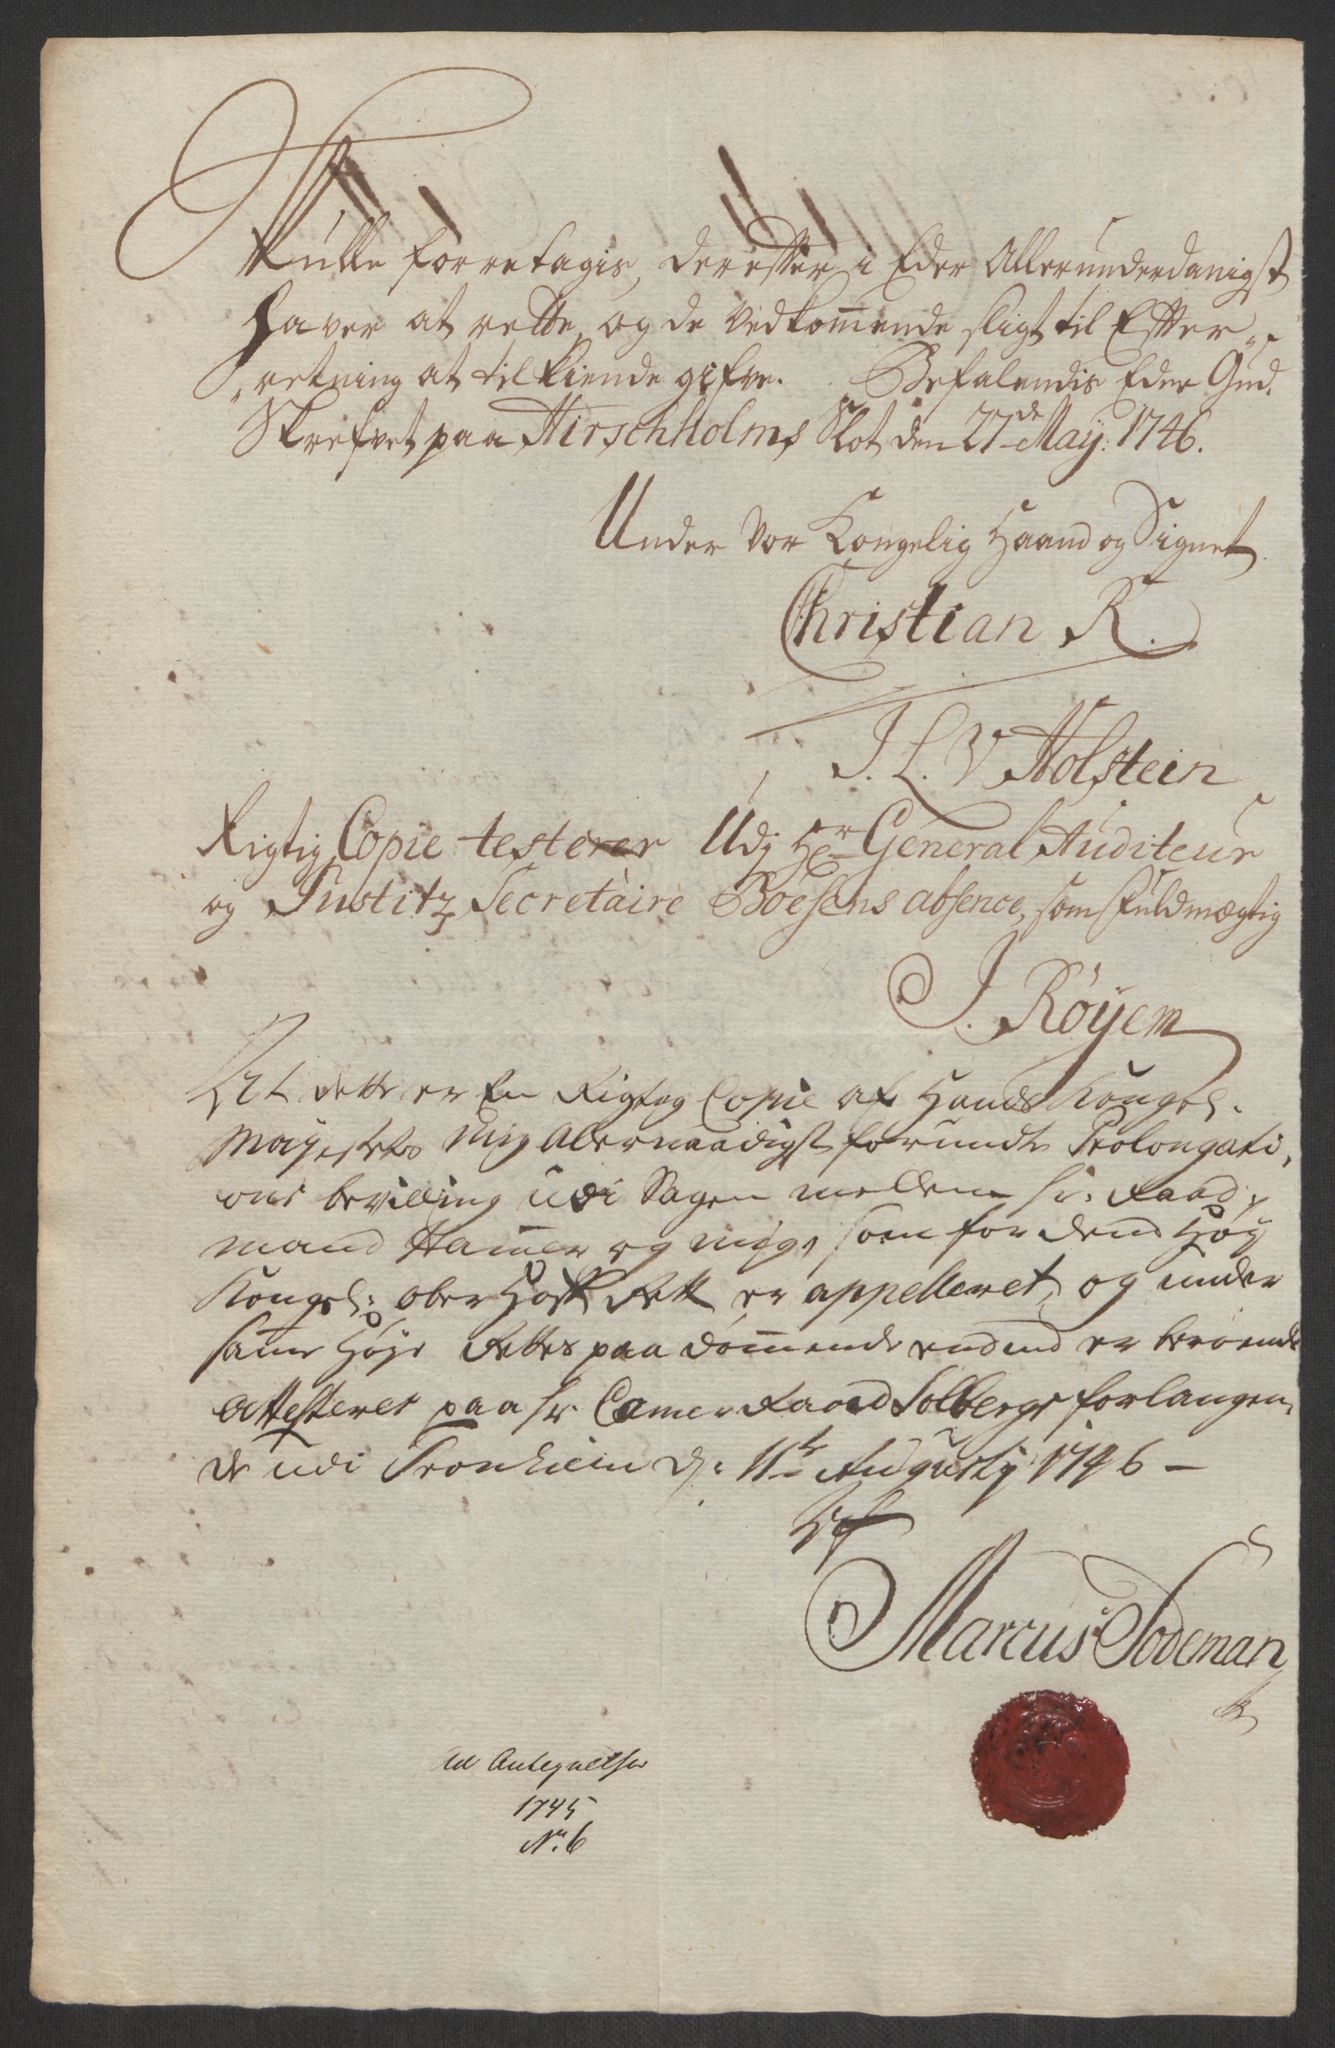 Skulle forretagis, derefter i Eder Allerunderdanigst
haver at rette, og de Vedkom̄ende sligt til Efter„
„retning at tilkiende gifve. Befalendis Eder Gud.
Skrefvet paa Hirschholms Slot den 27de May: 1746.
Under Vor Kongelig Haand og Signet.
Christian R.
J. L. V Holstein
Rigtig Copie testerer Udj Hr General Auditeur
og Justitz Secretaire Boesens absence, som Fuldmægtig
J. Röyem
At dette er En Rigtig Copie af Hands Kongel:
Mayestets Mig Allernaadigst forundte Prolongati,
ons bevilling udi Sagen mellem Hr. Raad,
mand Ham̄er og mig, som for dend Høy
Kongel: ober Hoff Rett er appelleret, og under
sam̄e Høye Rettes paadøm̄ende endnu er beroende
Attesteres paa Hr Camer Raad Solbergs forlangen,
de udi Tronhiem d: 11te Augustij 1746 –
Marcus Todeman
Ad Antegnelser
1745
No. 6